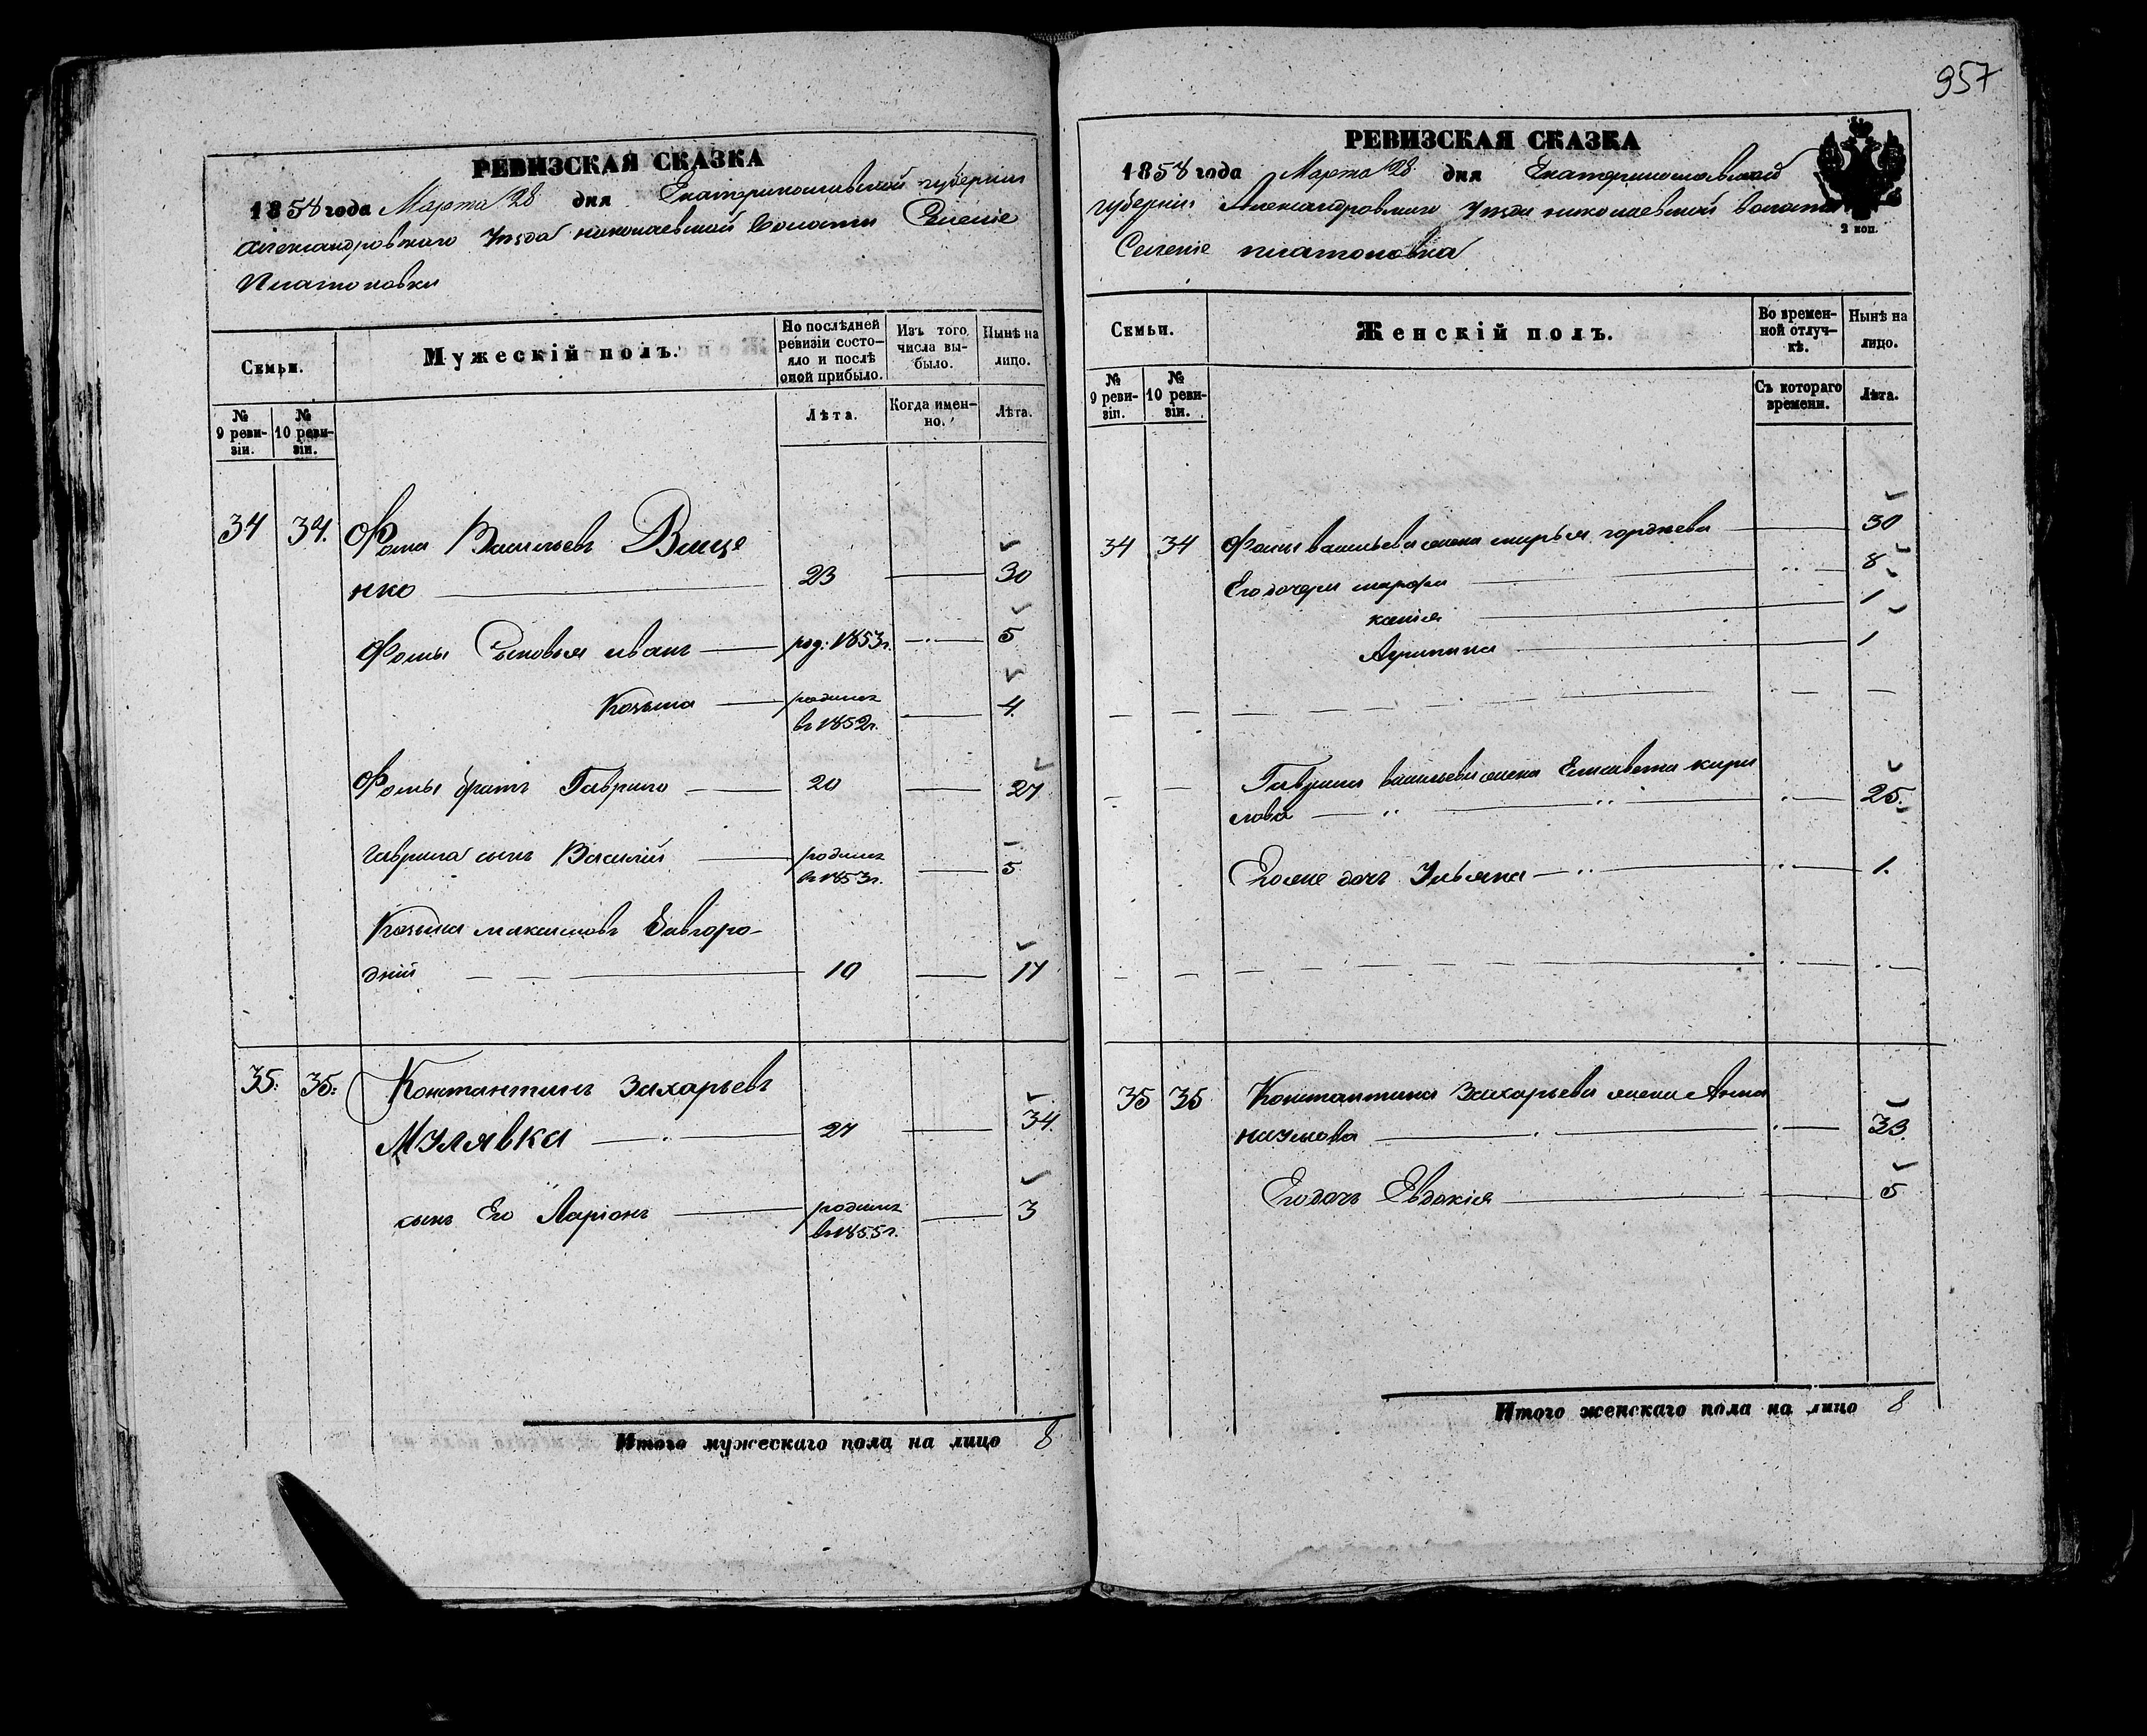 957
РЕВИЗСКАЯ СКАЗКА
1858 года Марта 28 дня Екатеринославской губернии
Александровскаго Уѣзда николаевской Волости Селеніе
Платоновки
Семьи.
Мужескій полъ.
По послѣдней ревизіи состояло и послѣ оной прибыло.
Изъ того числа выбыло.
Нынѣ на лицо.
№ 9 ревизіи.
№ 10 ревизіи.
Лѣта.
Когда именно.
Лѣта.
34 34. Фома Васильевъ
нко 23 30
Фомы Сыновья иванъ род. 1853г. 5
Козьма родился 4.
въ 1852г.
Фомы братъ Гаврило 20 27
гаврила сынъ Василій родился 5
въ 1853г.
Козьма максимовъ Завгоро-
дній 10 17
35: 35: Константинъ Захарьевъ
Мулявка 27 34.
сынъ Его Ларіонъ родился 3
въ 1855г.
Итого мужескаго пола на лицо 8
РЕВИЗСКАЯ СКАЗКА
1858 года Марта 28 дня Екатеринославской
губерніи Александровскаго Уѣзда николаевской волости
2 коп.
Селеніе платоновка
Семьи.
Женскій полъ.
Во временной отлучкѣ.
Нынѣ на лицо.
№ 9 ревизіи.
№ 10 ревизіи.
Съ котораго времени.
Лѣта.
34 34 Фомы васильева жена марья гордѣева 30
Его дочери марфа 8
1
Агрипина 1
Гаврила васильева жена Елисавета кири
лова 25.
Егоже дочь Ульяна 1.
35 35 Константина Захарьева жена Анна
наумова 33.
Его дочь Евдокія 5
Итого женскаго пола на лицо 8